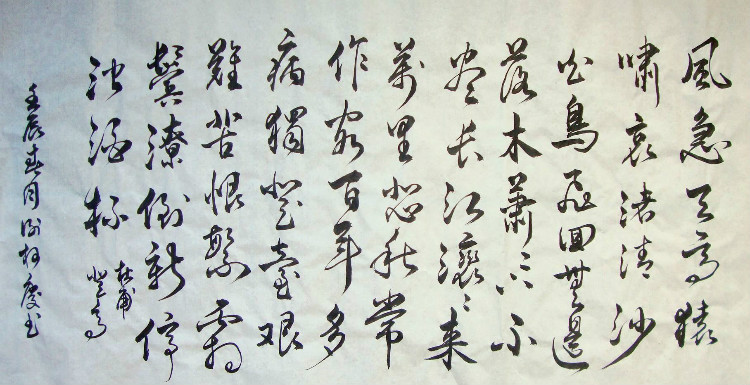 風急天高猿
嘯哀渚清沙
白鳥飛回無邊
落木蕭々下不
盡長江滾々来
萬里悲秋常
作客百年多
病獨登臺艱
難苦恨繁霜
鬢潦倒新停
濁酒杯
杜甫
登高
壬辰春月慶書